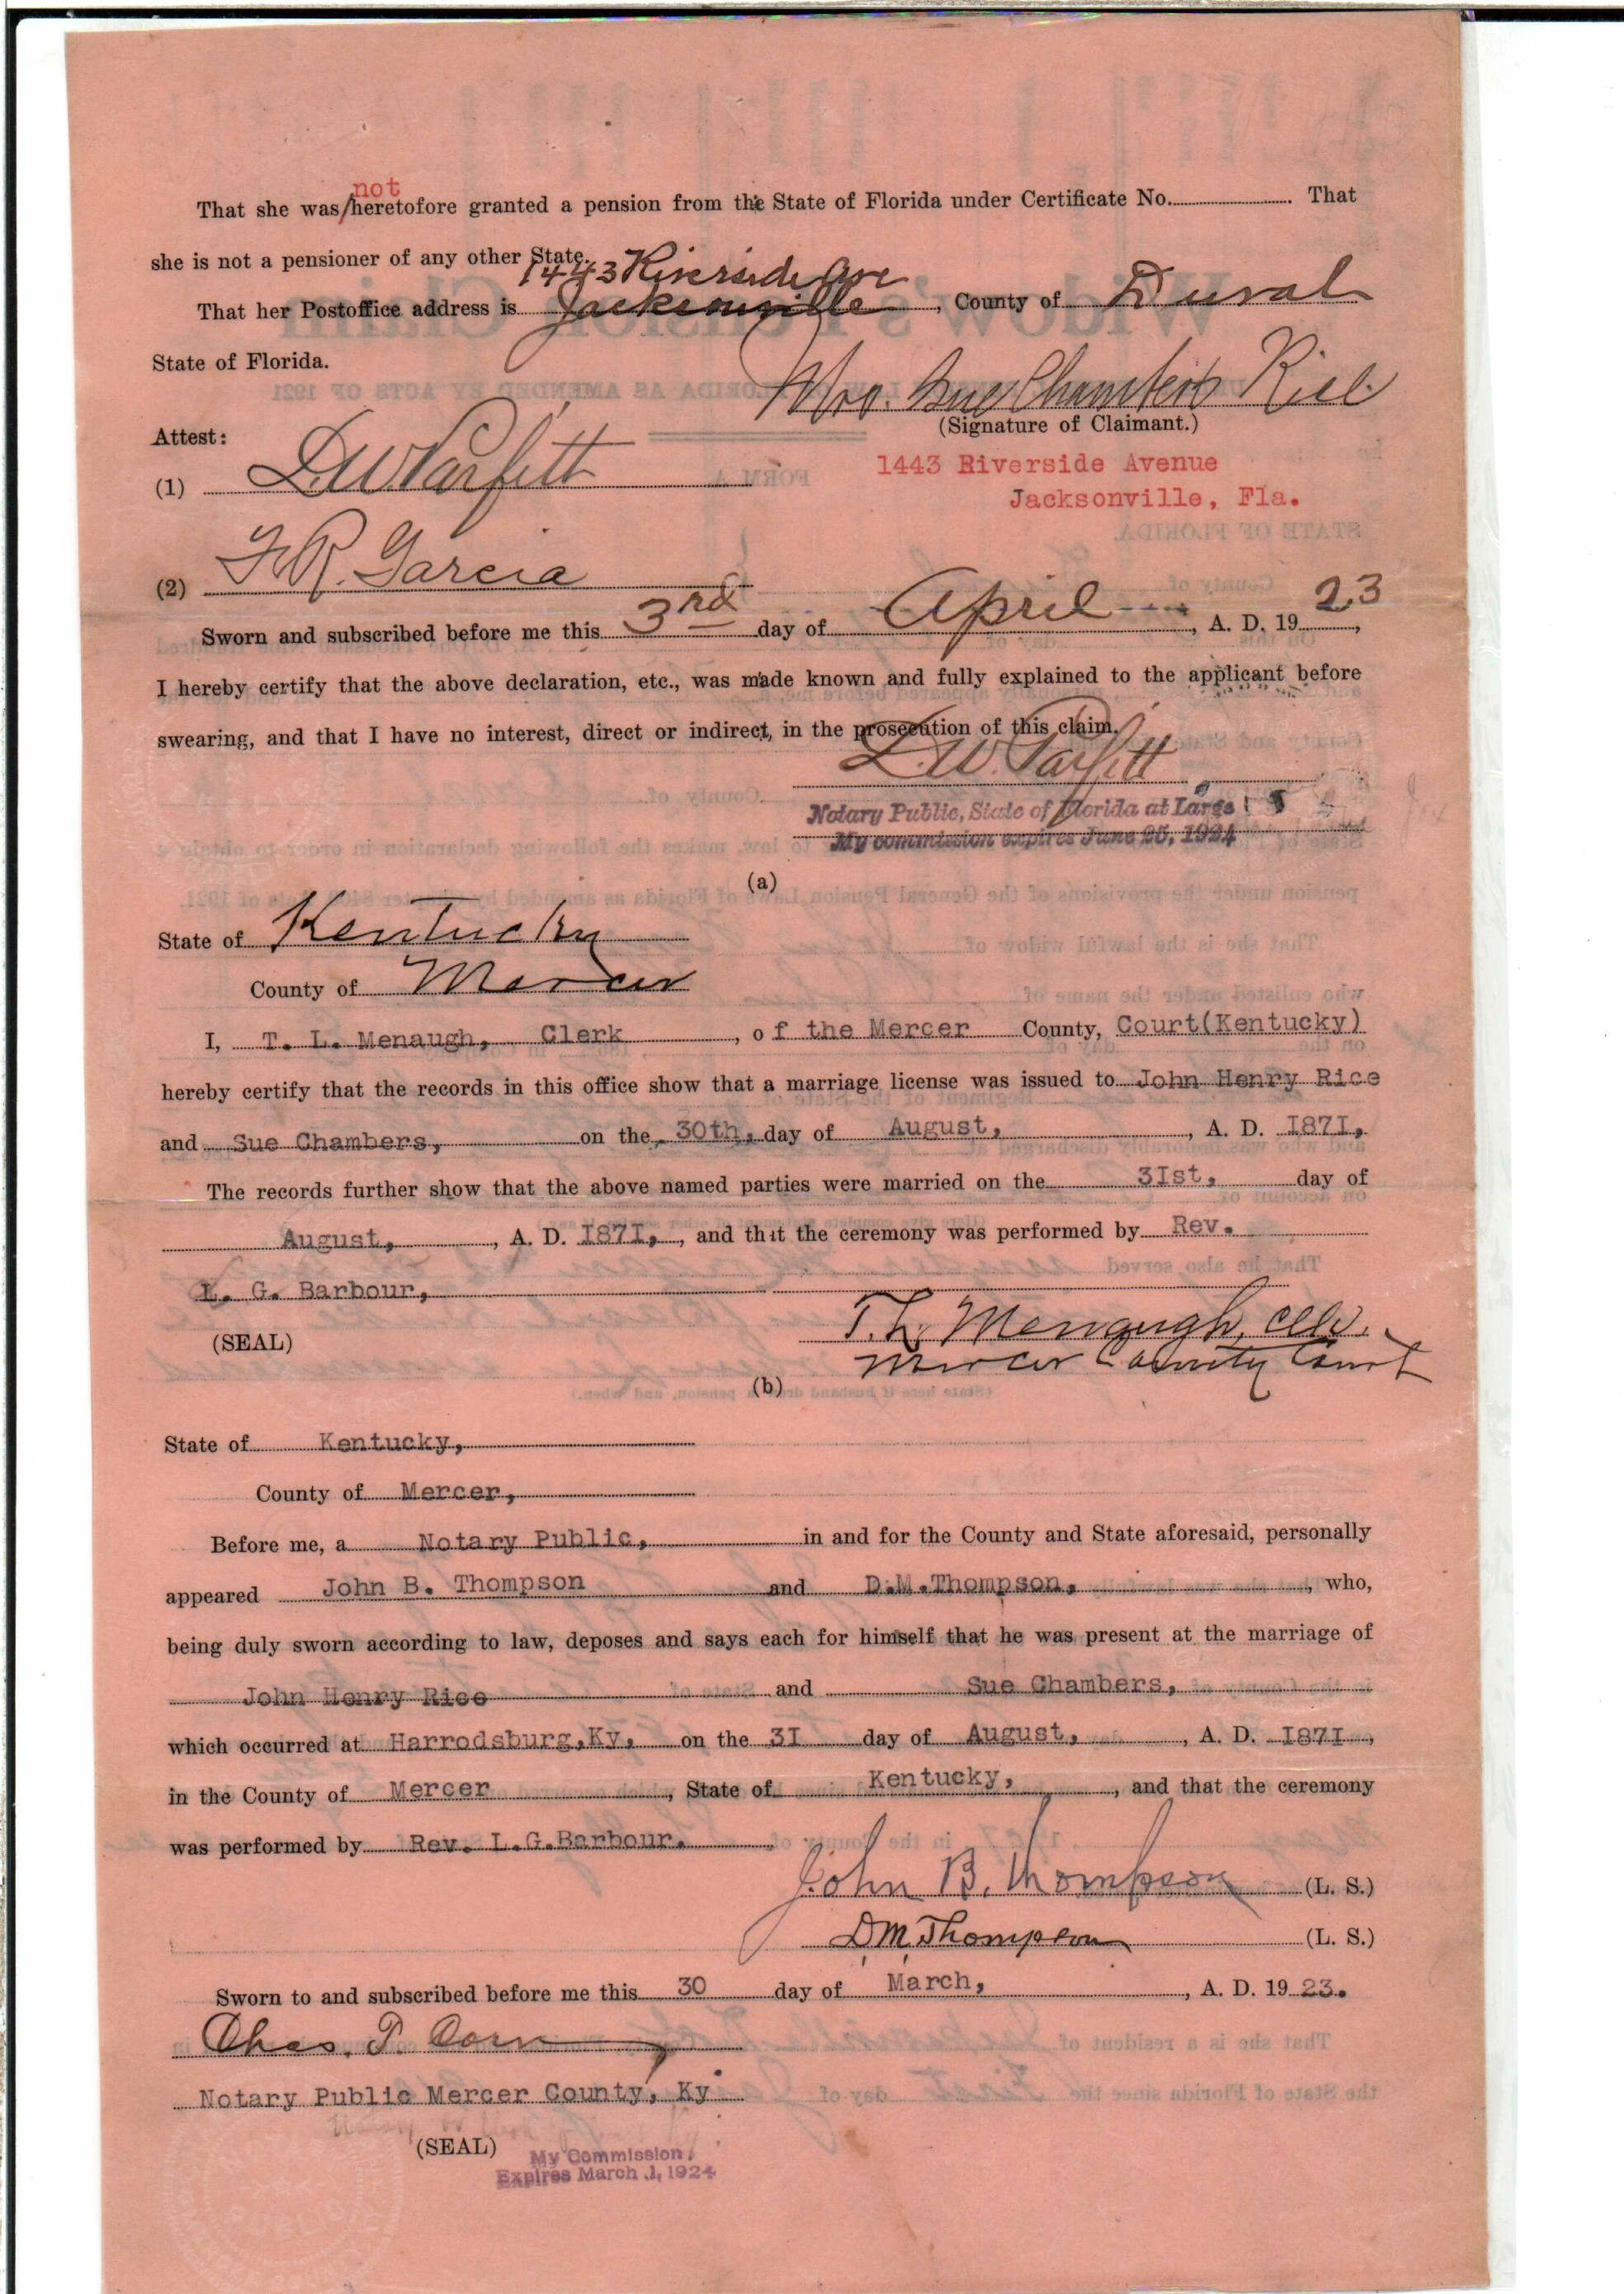 not
That she was/heretofore granted a pension from the State of Florida under Certificate No. That
she is not a pensioner of any other State.
1443 Riverside Ave
That her Postoffice address is Jacksonville, County of Duval
State of Florida.
Mrs. Sue Chambers Rice
(Signature of Claimant.)
Attest:
1443 Riverside Avenue
(1) D.W. Parfitt
Jacksonville, Fla.
(2) F.R. Garcia
Sworn and subscribed before me this 3rd day of April, A. D. 1923,
I hereby certify that the above declaration, etc., was made known and fully explained to the applicant before
swearing, and that I have no interest, direct or indirect, in the prosecution of this claim.
D.W. Parfitt
Notary Public, State of Florida at Large
My commission expires June 25, 1924
(a)
State of Kentucky
County of Mercer
I, T. L. Menaugh, Clerk, of the Mercer County, Court(Kentucky)
hereby certify that the records in this office show that a marriage license was issued to John Henry Rice
and Sue Chambers, on the 30th, day of August, A. D. I87I,
The records further show that the above named parties were married on the 3Ist, day of
August, A. D. I87I, and that the ceremony was performed by Rev.
L. G. Barbour,
(SEAL)
T. L. Menaugh, Clk.
Mercer County Court
(b)
State of Kentucky,
County of Mercer,
Before me, a Notary Public, in and for the County and State aforesaid, personally
appeared John B. Thompson and D.M.Thompson, who,
being duly sworn according to law, deposes and says each for himself that he was present at the marriage of
John Henry Rice and Sue Chambers,
which occurred at Harrodsburg,Ky, on the 3I day of August, A. D. I87I,
in the County of Mercer, State of Kentucky, and that the ceremony
was performed by Rev. L.G.Barbour.
John B. Thompson (L. S.)
D.M. Thompson (L. S.)
Sworn to and subscribed before me this 30 day of March, A. D. 19 23.
Chas. P. Corn
Notary Public Mercer County, Ky
(SEAL)
My Commission
Expires March 1, 1924